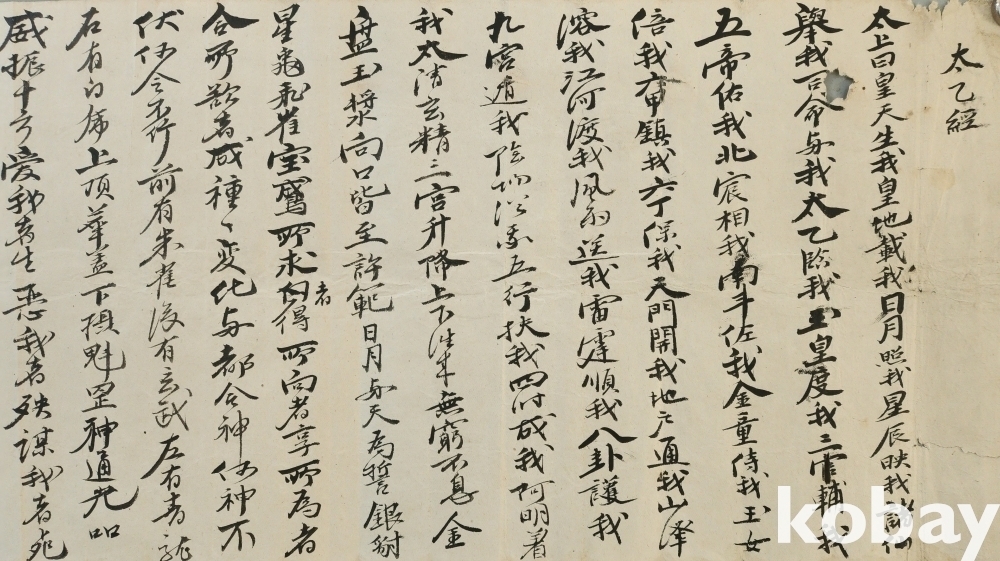 太乙經
太上曰皇天生我皇地載我日月照我星辰映我諸仙
擧我司命与我太乙臨我玉皇度我三官輔我
五帝佑我北宸相我南斗佐我金童侍我玉女
倍我六甲鎮我六丁保我天門開我地户通我山澤
溶我江河渡我風雨送我雷霆順我八卦護我
九宮遁我陰陽從我五行扶我四时成我阿明着
我太清玄精三宮升降上下往来無窮不息金
盘玉漿向口皆至許範日月与天為誓銀
星飛崔室鸞所求者得所向者享所為者
合所欲者成種々変化与都合神仙神不
伏仙令不行前有朱雀後有玄武左有青龍
右有白席上頂華盖下摂魁罡神通光
威振十方愛我者生惡我者殃謀我者死
kobay